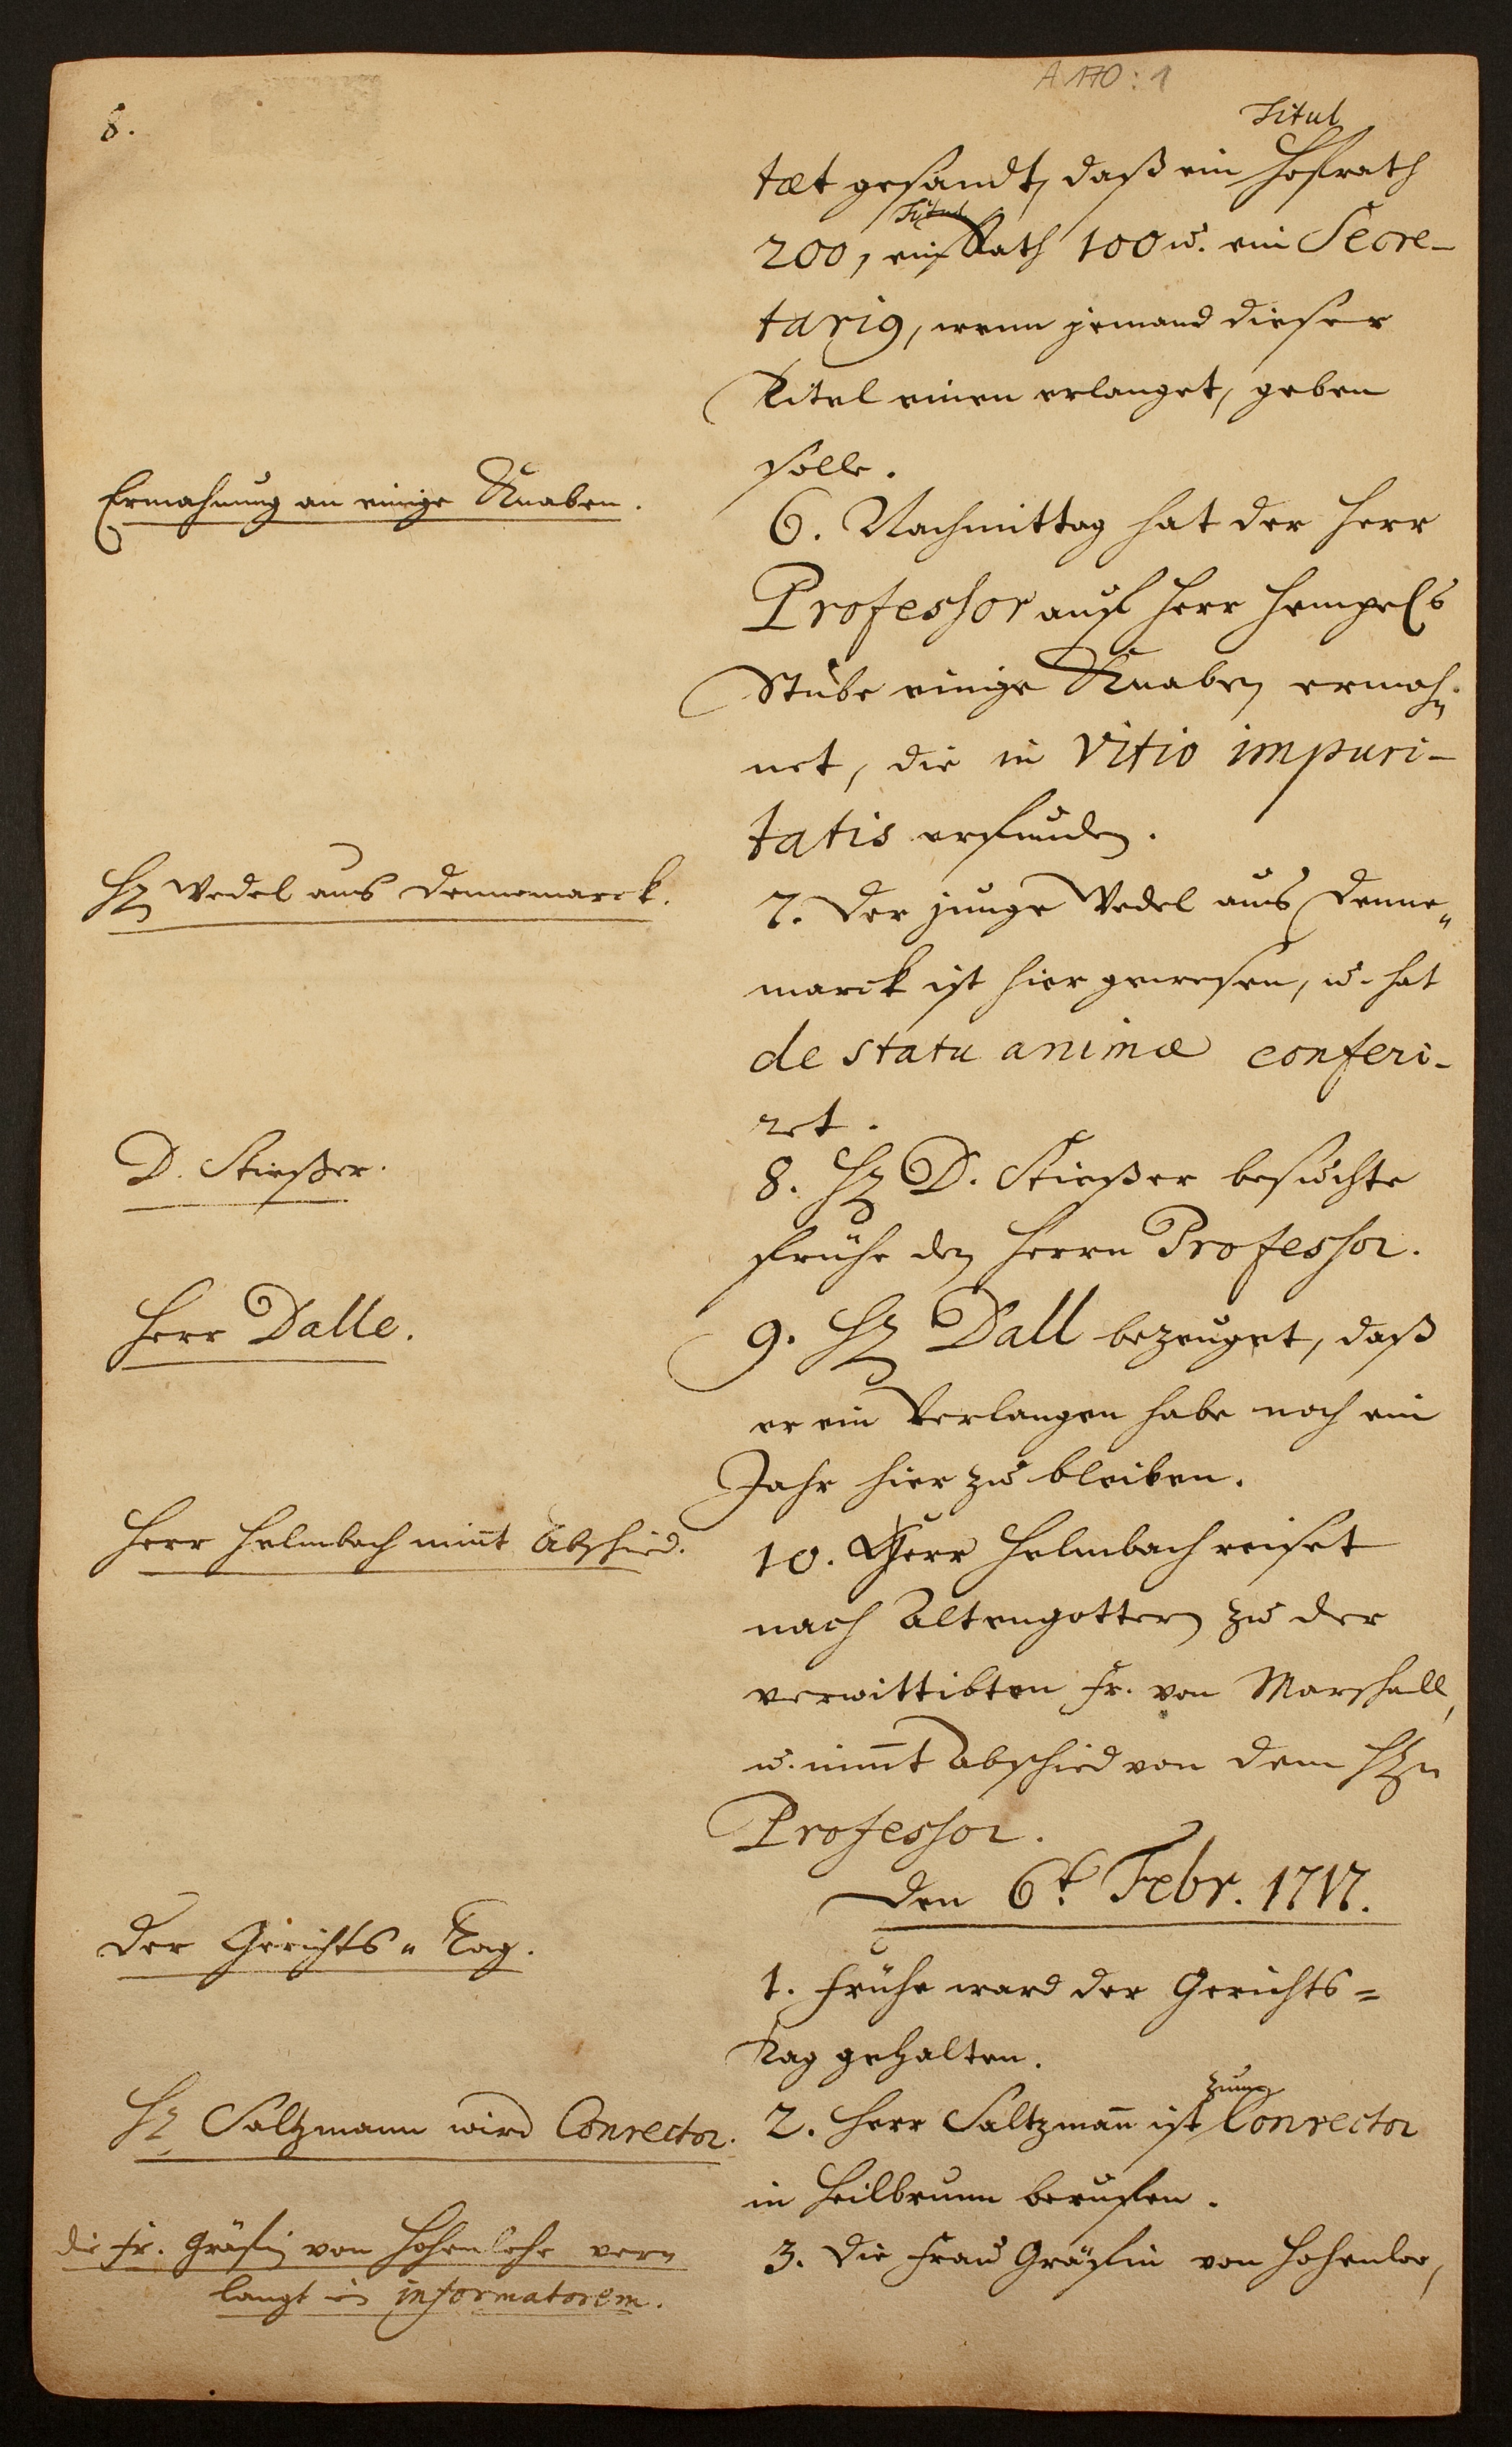 A 170 : 1
8.
Titul
tæt gesandt, daß ein Hofrath
Titul
200, ein Rath 100 u. ein Secre-
tarig, wenn jemand dieser
Titel einen erlanget, geben
solle.
Ermahnung an einige Knaben.
6. Nachmittag hat der Herr
Professor auf Herr Hempels
Stube einige Knaben ermah-
net, die in Vitio impuri-
tatis erfunden.
H. Wedel aus Dennemarck.
7. Der junge Wedel aus Denne-
marck ist hier gewesen, u. hat
de statu animæ conferi-
ret.
D. Stießer.
8. H. D. Stießer besuchte
frühe den Herrn Professor.
Herr Dalle.
9. H. Dall bezeuget, daß
er ein Verlangen habe noch ein
Jahr hier zu bleiben.
Herr Helmbach nimt Abschied.
10. Herr Helmbach reiset
nach Altengottern zu der
verwittibten Fr. von Marschall,
u. nimt Abschied von dem Hn
Professor.
Den 6t. Febr. 1717.
Der Gerichts-Tag.
1. Frühe ward der Gerichts=
Tag gehalten.
H. Saltzmann wird Conrector.
zum
2. Herr Saltzman̄ ist Conrector
in Heilbrunn beruffen.
die Fr. Gräfin von Hohenlohe ver-
langt informatorem.
3. Die Frau Gräfin von Hohenloe,